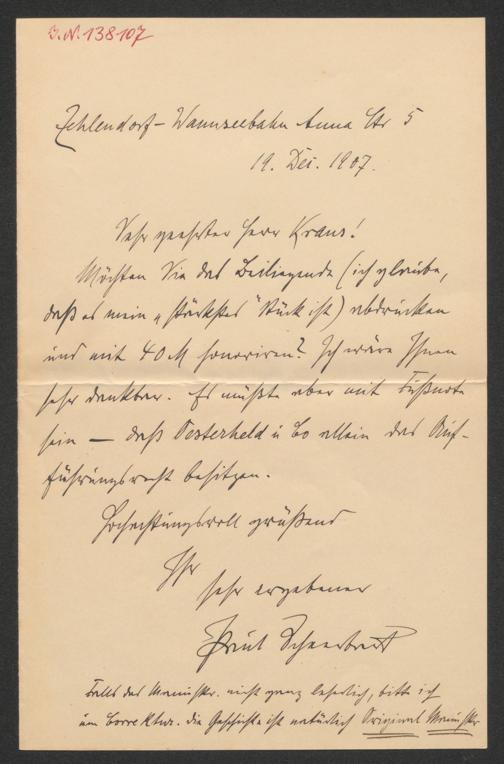 I.N. 138107
Zehlendorf – Wannseebahn Anna Str 5
19. Dez. 1907.
Sehr geehrter Herr Kraus!
Möchten Sie das Beiliegende (ich glaube,
daß es mein „stärkstes“ Stück ist) abdrucken
und mit 40 M honoriren? Ich wäre Ihnen
sehr dankbar. Es müßte aber mit Fußnote
sein — daß Oesterheld u Co allein das Auf-
führungsrecht besitzen.
Hochachtungsvoll grüßend
Ihr
sehr ergebener
Paul Scheerbart
Falls das Manuskr. nicht ganz leserlich, bitte ich
um Correktur. Die Geschichte ist natürlich Original Manuskr